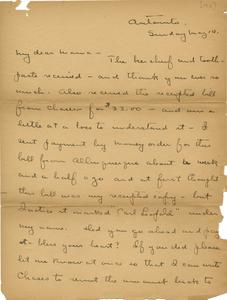 Antonito.
Sunday May 14.
My dear Mama –
The kerchief and tooth-
paste received – and thank you ever so
much. Also received the receipted bill
from Chasers for $33.00 – and am a
little at a loss to understand it – I
sent payment by money order for this
bill from Albuquerque about a week
and a half ago and at first thought
this bill was my receipted copy – but
I notice it marked "Carl Leopold" under
my name. Did you go ahead and pay
it – bless your heart? If you did please
let me know at once so that I can write
Chasers to remit the amount back to